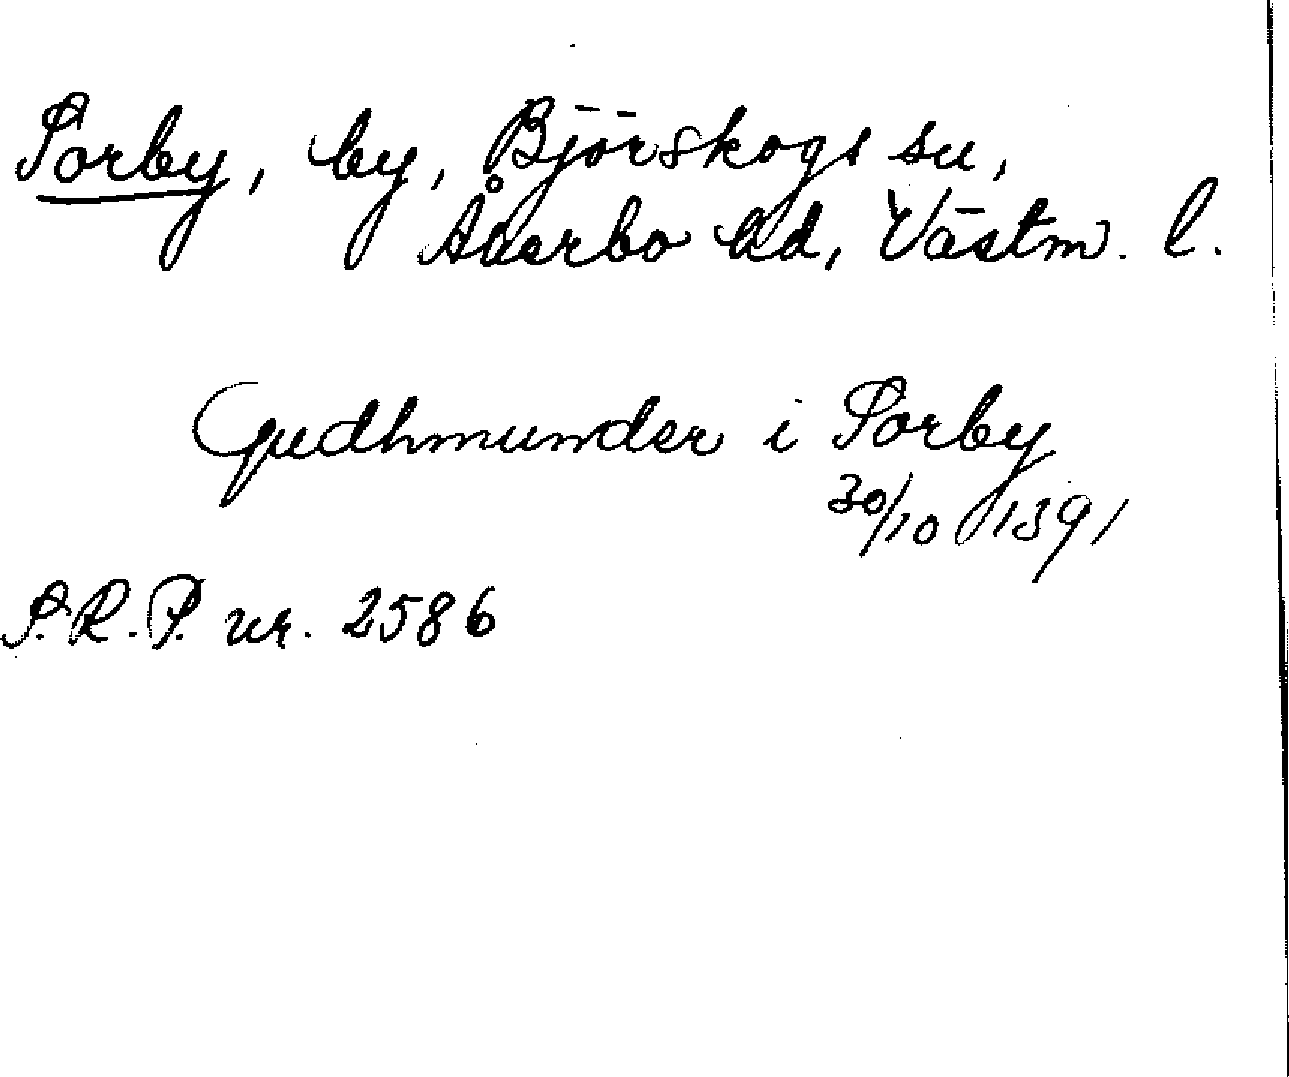 Sorby, by, Björskogs sn,
Åkerbo hd, Västm. l.
Gudhmunder i Sorby
30/10 1391
S.R.P. nr. 2586